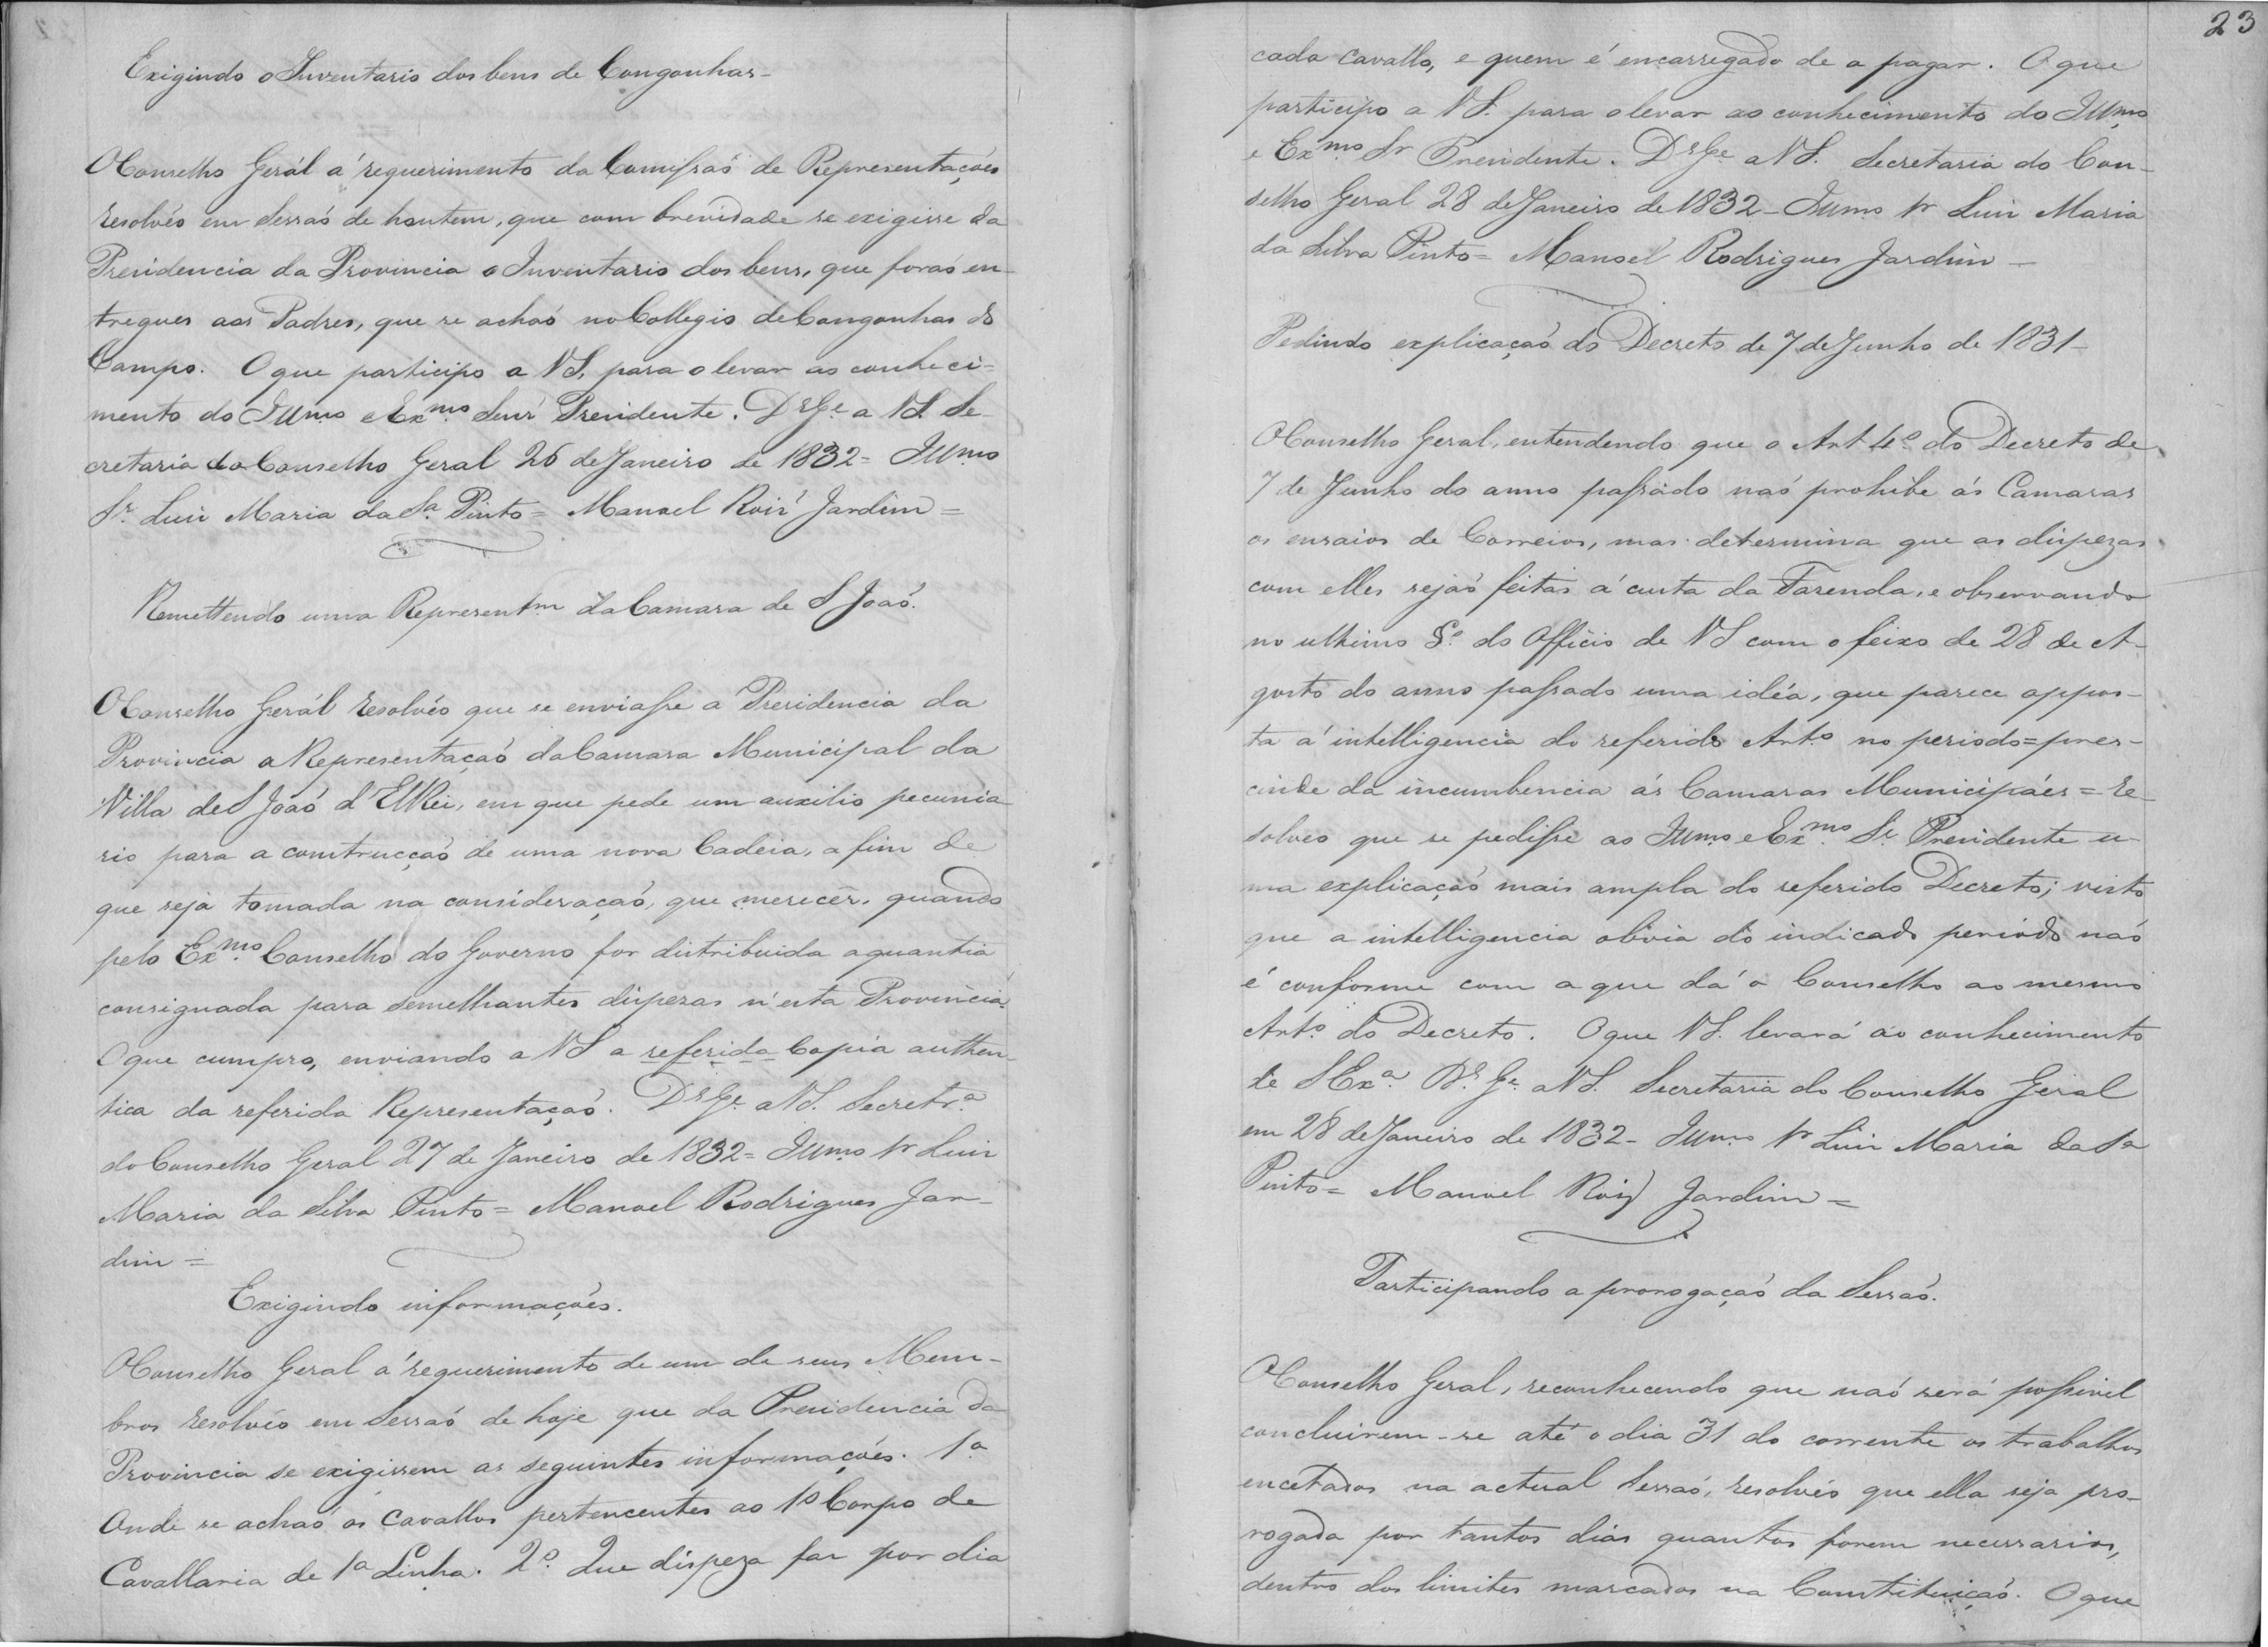 Exigindo o Inventario dos bens de Congonhas-
O Conselho Gerál á requerimento da Comissaõ de Representações
resolvêo em Sessaõ de hontem, que com brevidade se exigisse da
Presidencia da Provincia o Inventario dos bens, que foraõ en-
tregues aos Padres, que se achaõ no Collegio de Congonhas do
Campo. O que participo a VS, para o levar ao conheci=
mento do Illmo e Exmo Senr Presidente. Ds Ge a VS. Se-
cretaria do Conselho Geral 26 de Janeiro de 1832= Illmo
Sr. Luis Maria da Sa Pinto= Manoel Roiz Jardim=
Remettendo uma Representm da Camara de S Joaõ.
O Conselho Gerál resolvêo que se enviasse á Presidencia da
Provincia a Representaçaõ da Camara Municipal da
Villa de S Joaõ d'ElRei, em que pede um auxilio pecunia
rio para a construcçaõ de uma nova Cadeia, a fim de
que seja tomada na consideraçaõ, que merecêr, quando
pelo Exmo Conselho do Governo for distribuida a quantia
consignada para semelhantes dispezas n'esta Provincia.
O que cumpro, enviando a VS a referida Copia authen-
tica da referida Representaçaõ. Ds Ge a VS. Secretra
do Conselho Geral 27 de Janeiro de 1832= Illmo Sr Luis
Maria da Silva Pinto= Manoel Rodrigues Jar-
dim=
Exigindo informações.
O Conselho Geral á requerimento de um de seus Mem-
bros resolvêo em Sessaõ de hoje que da Presidencia da
Provincia se exigissem as seguintes informações. 1a
Onde se achaõ os Cavallos pertencentes ao 1o Corpo de
Cavallaria de 1a Linha. 2o. Que dispeza faz por dia
23
cada cavallo, e quem é encarregado de a pagar. O que
participo a VS. para o levar ao conhecimento do Illmo
e Exmo Sr Presidente. Ds Ge a VS. Secretaria do Con-
selho Geral 28 de Janeiro de 1832- Illmo Sr Luis Maria
da Silva Pinto= Manoel Rodrigues Jardim-
Pedindo explicaçaõ do Decreto de 7 de Junho de 1831-
O Conselho Geral, entendendo que o Art 4o do Decreto de
7 de Junho do anno passado naõ prohibe ás Camaras
os ensaios de Correios, mas determina que as dispezas
com elles sejaõ feitas á custa da Fazenda, e observando
no ultimo §o do Officio de VS com o feixo de 28 de A-
gosto do anno passado uma idéa, que parece oppos-
ta á intelligencia do referido Arto no periodo=pres-
cinde da incumbencia ás Camaras Municipáes=re-
solveo que se pedisse ao Illmo e Exmo Sr Presidente u-
ma explicaçaõ mais ampla do referido Decreto; visto
que a intelligencia obvia do indicado periodo naõ
é conforme com a que dá o Conselho ao mesmo
Arto. do Decreto. O que VS. levará ao conhecimento
de SExa. Ds. Ge. a VS. Secretaria do Conselho Geral
em 28 de Janeiro de 1832- Illmo Sr Luis Maria da Sa
Pinto= Manoel Roiz Jardim=
Participando a prorogaçaõ da Sessaõ.
O Conselho Geral, reconhecendo que naõ será possivel
concluirem-se até o dia 31 do corrente os trabalhos
encetados na actual Sessaõ, resolvêo que ella seja pro-
rogada por tantos dias quantos forem necessarios,
dentro dos limites marcados na Constituiçaõ. O que